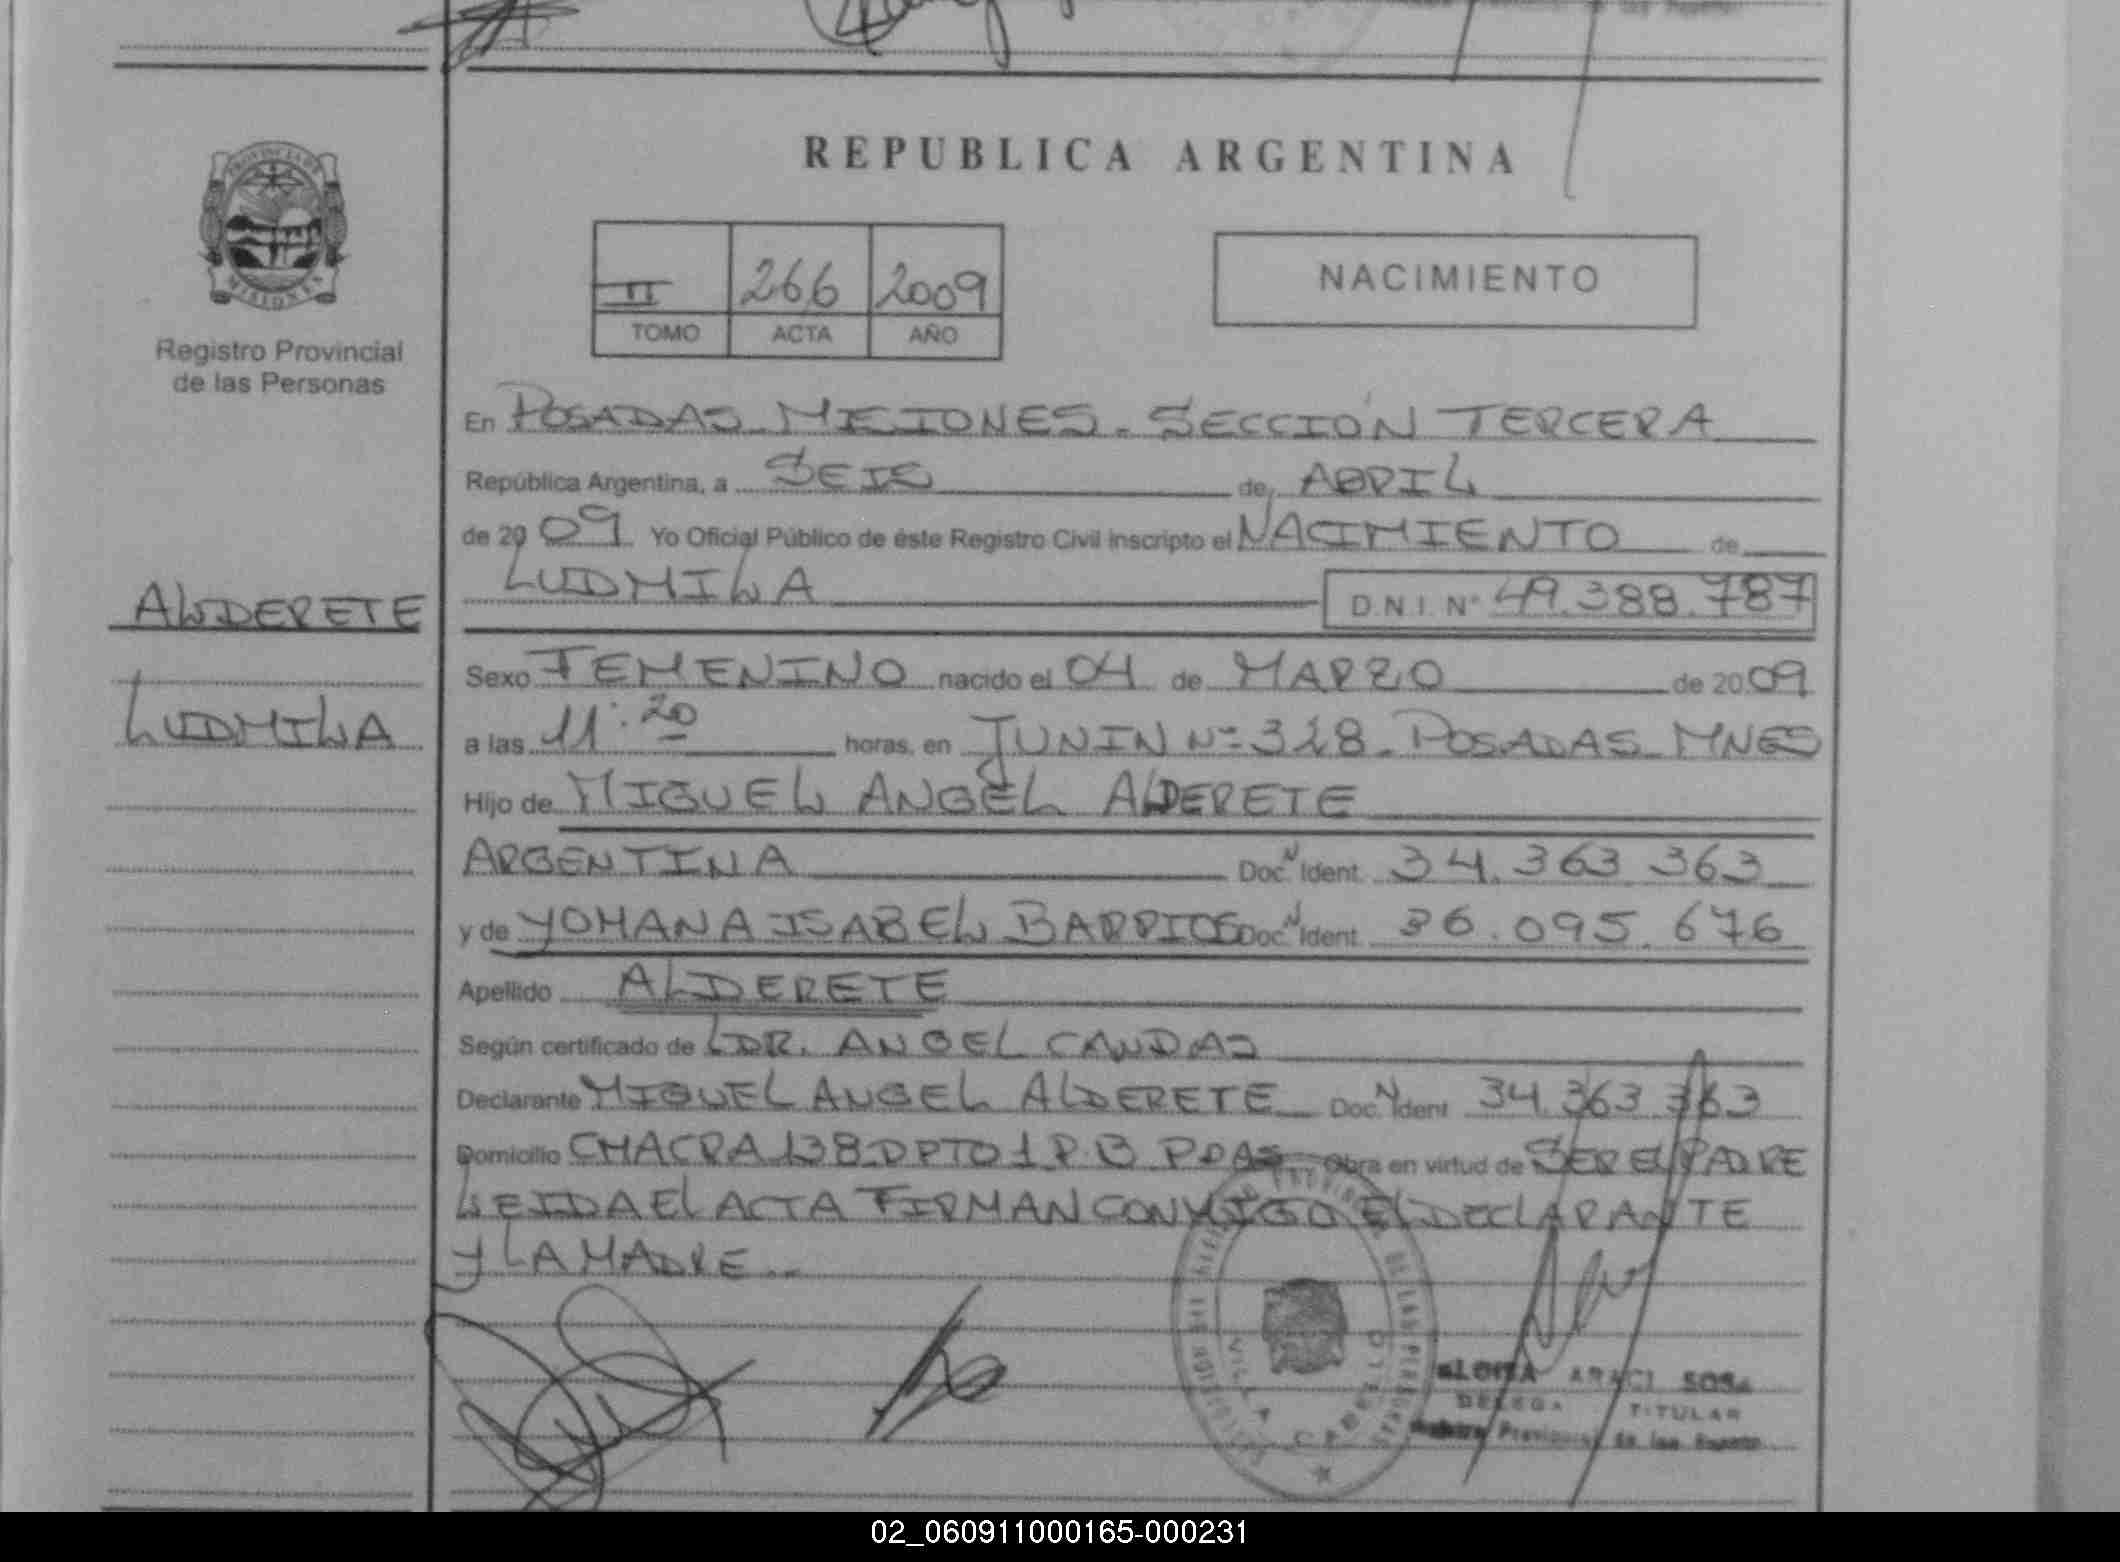 REPUBLICA ARGENTINA
PROVINCIA DE
MISIONES
Registro Provincial
de las Personas
II 266 2009
TOMO ACTA AÑO
NACIMIENTO
En POSADAS MISIONES. SECCIÓN TERCERA
República Argentina, a SEIS de ABRIL
de 2009 Yo Oficial Público de éste Registro Civil inscripto el NACIMIENTO de
LUDMILA D.N.I. Nº 49.388.787
ALDERETE
LUDMILA
Sexo FEMENINO nacido el 04 de MARZO de 2009
a las 11:20 horas, en JUNIN Nº 328. POSADAS MNES
Hijo de MIGUEL ANGEL ALDERETE
ARGENTINA Doc. N Ident. 34.363 363
y de YOHANA ISABEL BARRIOS Doc. N Ident. 36.095.676
Apellido ALDERETE
Según certificado de DR. ANGEL CANDAS
Declarante MIGUEL ANGEL ALDERETE Doc. N Ident 34.363 363
Domicilio CHACRA 138 DPTO 1 P.B PDAS Obra en virtud de SER EL PADRE
LEIDA EL ACTA FIRMAN CONMIGO EL DECLARANTE
Y LA MADRE..
VILLA CABELLO
ARACI SOSA
DELEGA TITULAR
02_060911000165-000231